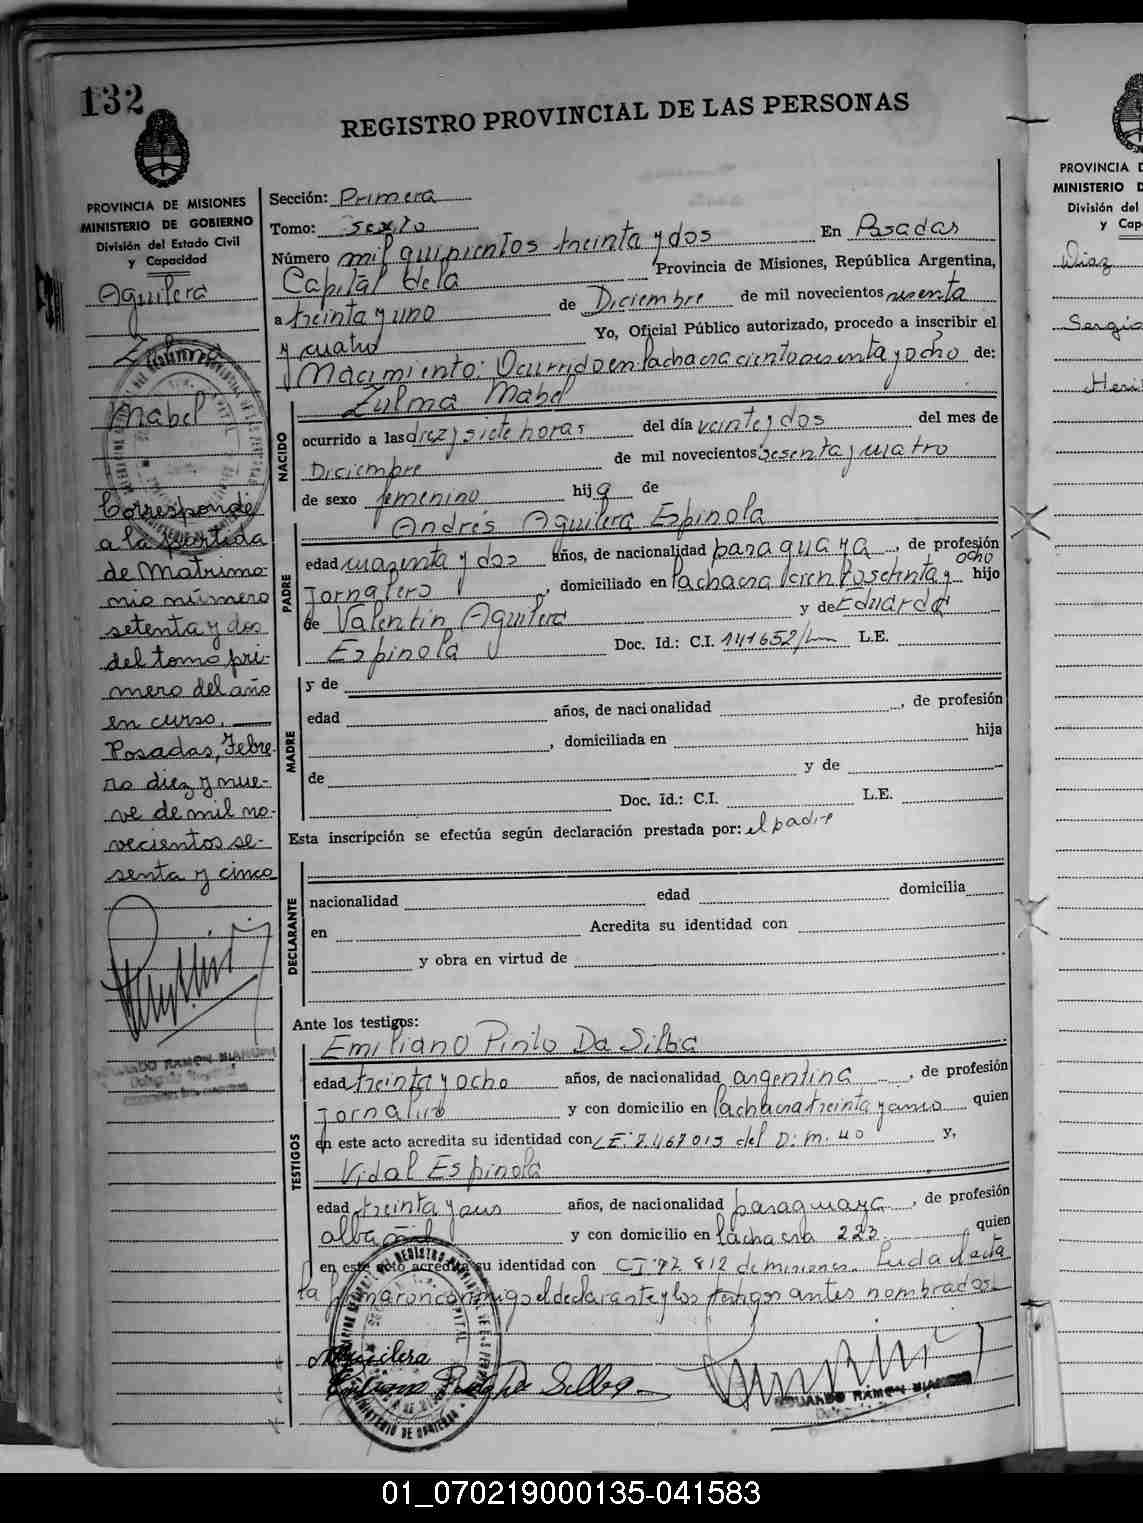 132
REGISTRO PROVINCIAL DE LAS PERSONAS
PROVINCIA DE MISIONES
MINISTERIO DE GOBIERNO
División del Estado Civil
y Capacidad
Aguilera
Zulma
Mabel
Corresponde
a la partida
de Matrimo-
nio número
setenta y dos
del tomo pri-
mero del año
en curso.
Posadas, Febre-
ro diez y nue-
ve de mil no-
vecientos se-
senta y cinco
Sección: Primera
Tomo: sexto
Número mil quinientos treinta y dos En Posadas
Capital de la Provincia de Misiones, República Argentina,
a treinta y uno de Diciembre de mil novecientos sesenta
y cuatro Yo, Oficial Público autorizado, procedo a inscribir el
Nacimiento: Ocurrido en la chacra ciento sesenta y ocho de:
Zulma Mabel
NACIDO
ocurrido a las diez y siete horas del día veinte y dos del mes de
Diciembre de mil novecientos sesenta y cuatro
de sexo femenino hija de
Andrés Aguilera Espinola
PADRE
edad cuarenta y dos años, de nacionalidad paraguaya, de profesión
Jornalero, domiciliado en la chacra cien to sesenta y ocho hijo
de Valentín Aguilera y de Eduarda
Espinola Doc. Id.: C.I. 141652 L.E.
MADRE
y de
edad años, de nacionalidad , de profesión
, domiciliada en hija
de y de
Doc. Id.: C.I. L.E.
Esta inscripción se efectúa según declaración prestada por: el padre
DECLARANTE
nacionalidad edad domicilia
en Acredita su identidad con
y obra en virtud de
Ante los testigos:
TESTIGOS
Emiliano Pinto Da Silba
edad treinta y ocho años, de nacionalidad argentina, de profesión
Jornalero y con domicilio en la chacra treinta y quien
en este acto acredita su identidad con L.E. 7.467015 del D.M. 40 y,
Vidal Espinola
edad treinta y años, de nacionalidad paraguaya, de profesión
albañil y con domicilio en la chacra 223 quien
en este acto acredita su identidad con CI 92 812 de misiones. Leida el acta
la firmaron conmigo el declarante y los testigos antes nombrados.
Aguilera
Emiliano Pinto Da Silba
EDUARDO RAMON BIANCHI
PROVINCIA D
MINISTERIO D
División del
y Cap
Diaz
Sergio
01_070219000135-041583